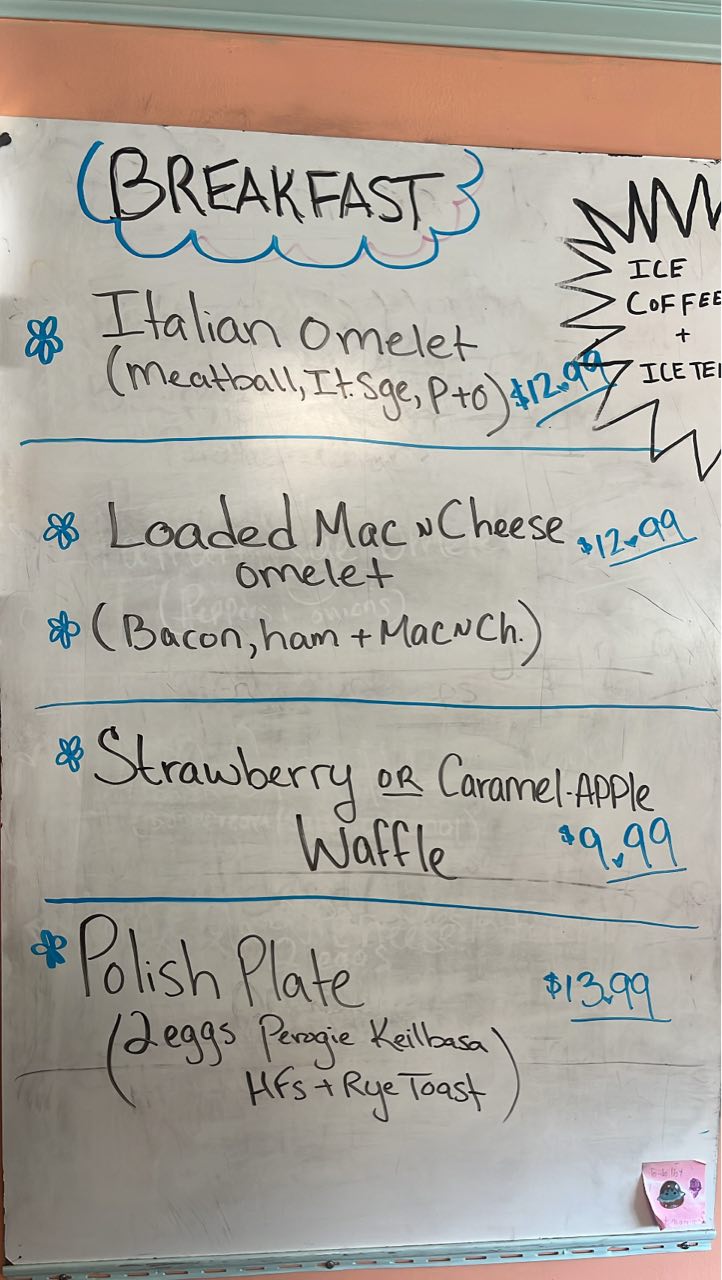 BREAKFAST
ICE
COFFEE
+
ICE TE
Italian omelet
(Meatball, It. Sge, P+O) $12.99
Loaded Mac N Cheese $12.99
omelet
(Bacon, ham + Mac N Ch.)
Strawberry OR Caramel-APPle
Waffle $9.99
Polish Plate $13.99
(2 eggs Perogie Keilbasa
HFs + Rye Toast)